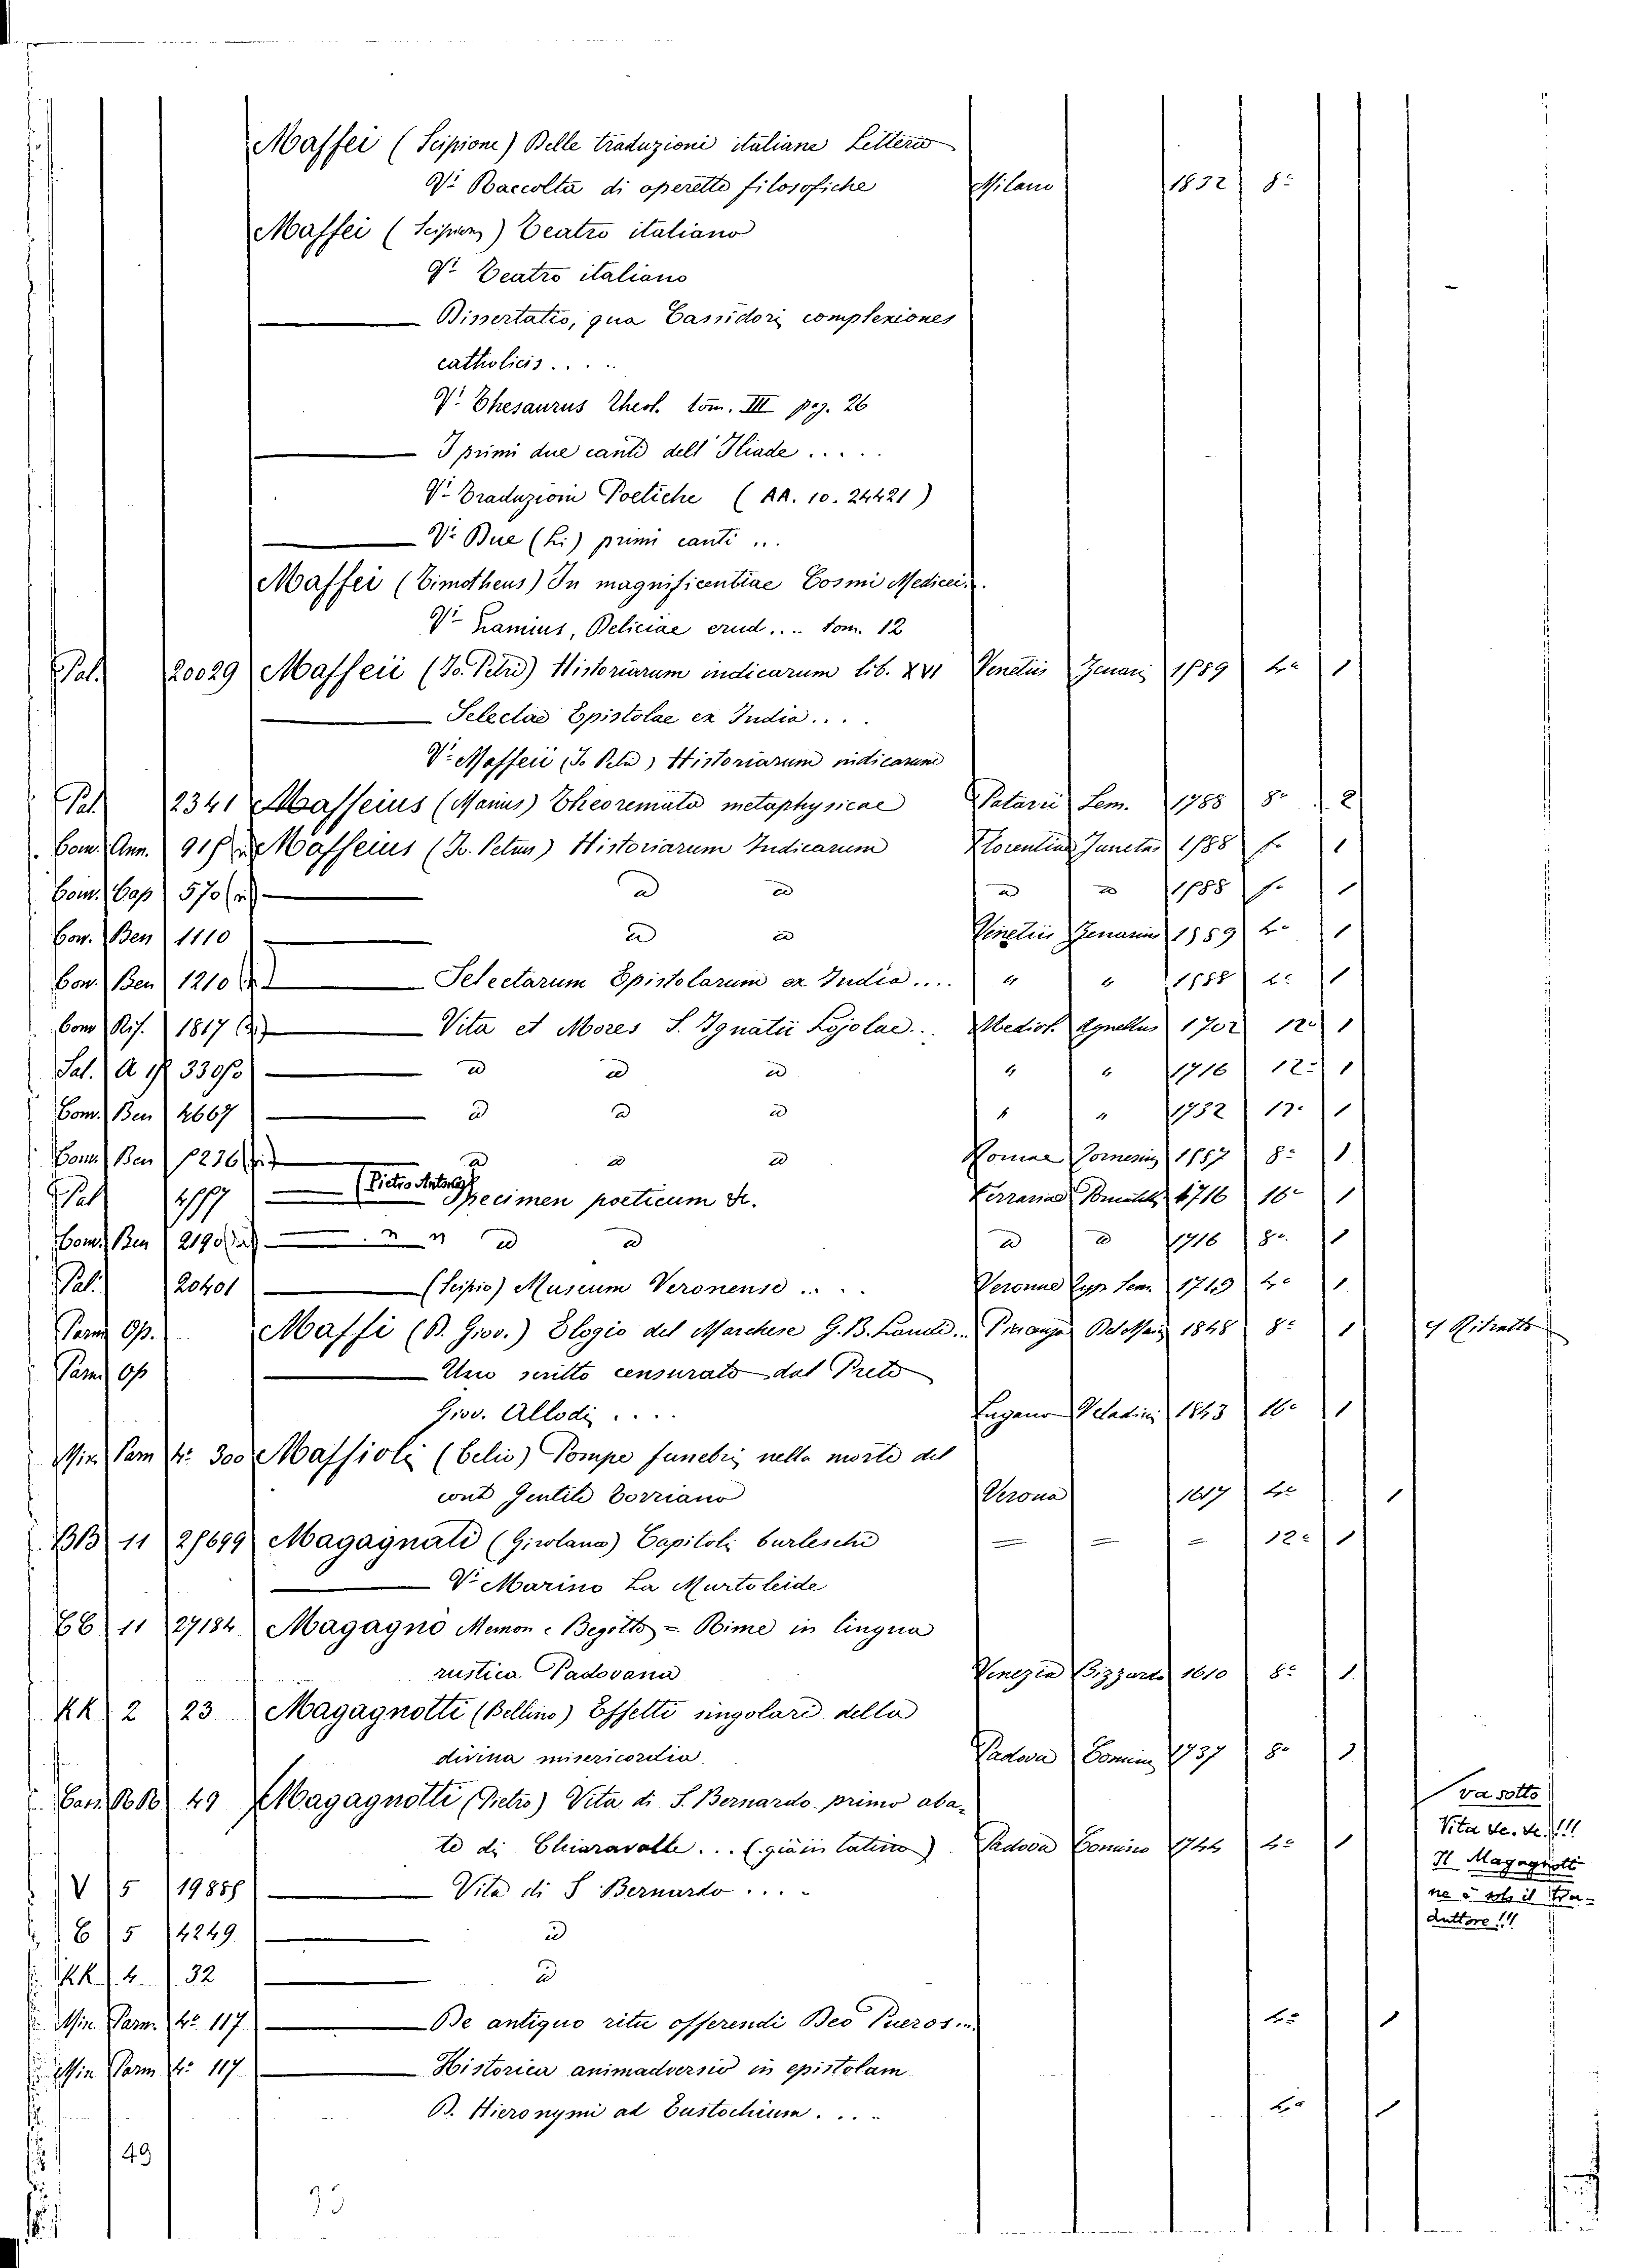 Maffei (Scipione) Delle traduzioni italiane Lettera
Vi Raccolta di operette filosofiche Milano 1832 8º
Maffei (Scipione) Teatro italiano
Vi Teatro italiano
Dissertatio, qua Cassidorj complexiones
catholicis.....
Vi Thesaurus Theol. tom. III pag. 26
I primi due canti dell' Iliade.....
Vi Traduzioni Poetiche (AA. 10. 24421)
Vi Due (Li) primi canti...
Maffei (Timotheus) In magnificentiae Cosmi Medicei..
Vi Lamius, Deliciae erud.... tom. 12
Pal. 20029 Maffeii (Jo. Petri) Historiarum indicarum lib. XVI Venetiis Zenarj 1589 4º 1
Selectae Epistolae ex India....
Vi Maffeii (Jo Petri) Historiarum indicarum
Pal. 2341 Maffeius (Marius) Theoremata metaphysicae Patavii Sem. 1785 8º 2
Com. Ann. Maffeius (Jo. Petrus) Historiarum Indicarum Florentiae Junctas 1588 fº 1
Com. Cap 570 id id id id 1588 fº 1
Com. Ben 1110 id id Venetiis Zenarius 1589 4º 1
Com. Ben 1210 Selectarum Epistolarum ex India.... " " 1588 4º 1
Com. Rif. 1817 Vita et Mores S. Ignatii Lojolae... Mediol. Agnellus 1702 12º 1
Sal. A 330 id id id " " 1716 12º 1
Com. Ben 4667 id id id " " 1752 12º 1
Com. Ben id id id Romae 8º 1
Pal (Pietro Antonio) Specimen poeticum &. Ferrariae 1716 16º 1
Com. Ben 2190 " " id id id id 1716 8º 1
Pal. 20401 (Scipio) Museum Veronense.... Veronae Typ Sem. 1749 4º 1
Parm Op. Maffi (D. Giov.) Elogio del Marchese G. B. 1848 8º 1 4 Ritratto
Parm Op Uno scritto censurato dal Prete
Giov. Allodj.... Lugano Veladini 1843 16º 1
Min. Parm 4º 300 Maffioli (Celio) Pompe funebri nella morte del
cont Gentile Torriano Verona 1617 4º 1
BB 11 25699 Magagnati (Girolamo) Capitoli burleschi — — — 12º 1
Vi Marino La Murtoleide
CC 11 27184 Magagnò Menon e Begotto = Rime in lingua
rustica Padovana Venezia Bizzardo 1610 8º 1.
KK 2 23 Magagnotti (Bellino) Effetti singolari della
divina misericordia Padova Comin 1737 8º 1
49 Magagnotti (Pietro) Vita di S. Bernardo primo aba-
te di Chiaravalle... (già in latino). Padova Comino 1744 4º 1
va sotto
Vita &e. &e.!!!
Il Magagnotti
ne è solo il tra-
duttore!!!
V 5 Vita di S Bernardo....
C 5 4249 id
KK 4 32 id
Min. Parm. 4º 117 De antiquo ritu offerendi Deo Pueros... 4º 1
Min Parm 4º 117 Historica animadversio in epistolam
B. Hieronymi ad Eustochium.... 4º 1
49
33